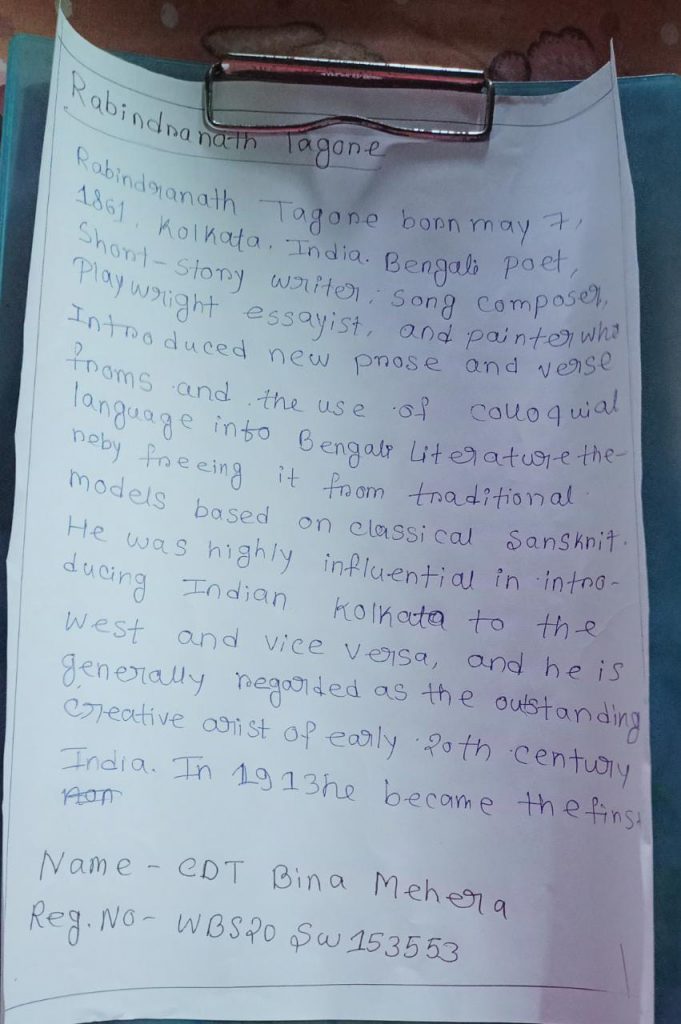 Rabindranath Tagore
Rabindranath Tagore born may 7,
1861, Kolkata, India. Bengali poet,
Short-Story writer, song composer,
Playwright essayist, and painter who
Introduced new prose and verse
froms and the use of colloquial
language into Bengali Literature the-
reby freeing it from traditional
models based on classical Sanskrit.
He was highly influential in intro-
ducing Indian Kolkata to the
West and vice versa, and he is
generally regarded as the outstanding
Creative arist of early 20th century
India. In 1913he became the first
Name - CDT Bina Mehera
Reg. No - WBS20 SW 153553